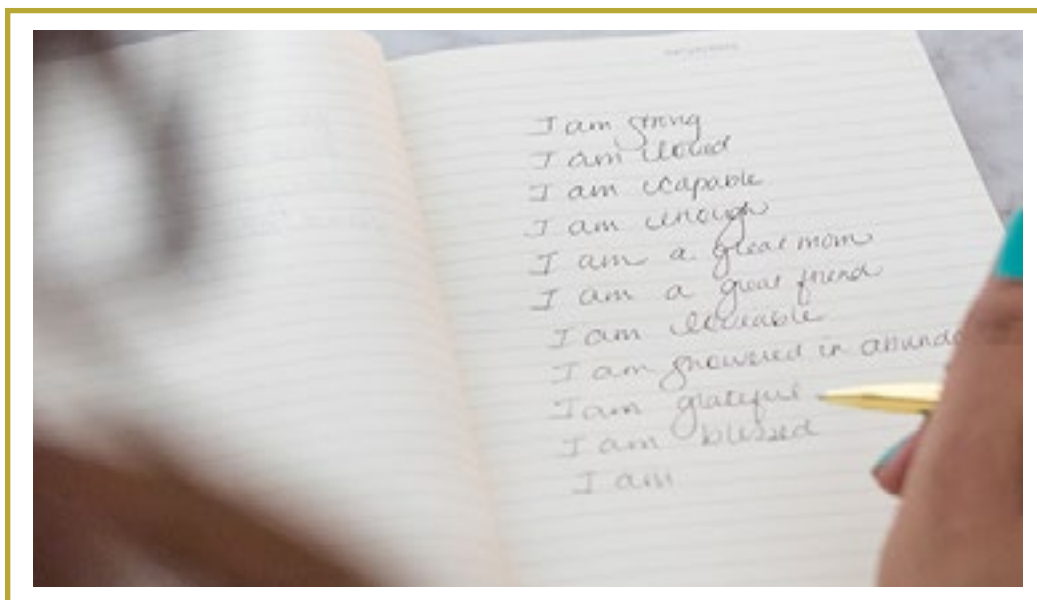 I am strong
I am loved
I am capable
I am enough
I am a great mom
I am a great friend
I am loveable
I am showered in abund
I am grateful
I am blessed
I am